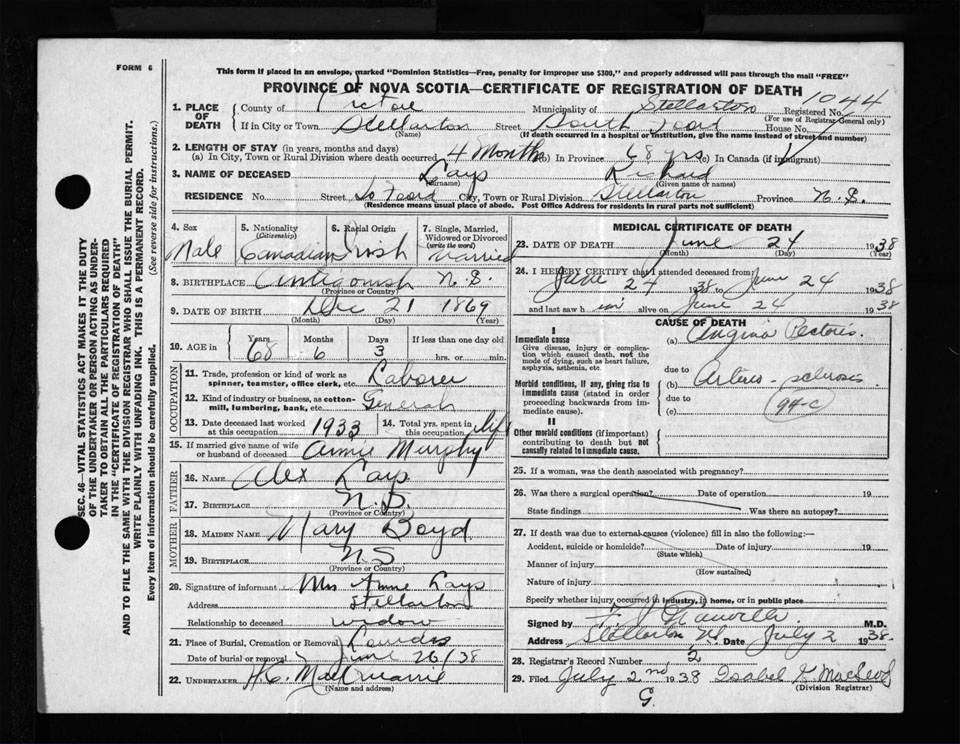 FORM 6
This form if placed in an envelope, marked "Dominion Statistics—Free, penalty for improper use $300," and properly addressed will pass through the mail "FREE"
PROVINCE OF NOVA SCOTIA—CERTIFICATE OF REGISTRATION OF DEATH
1044
1. PLACE OF DEATH County of Pictou Municipality of Stellarton Registered No.
(For use of Registrar-General only)
If in City or Town Stellarton Street South Foord House No.
(Name) (If death occurred in a hospital or institution, give the name instead of street and number)
2. LENGTH OF STAY (in years, months and days)
(a) In City, Town or Rural Division where death occurred 4 Months (b) In Province 68 yrs (c) In Canada (if immigrant)
3. NAME OF DECEASED Lays Richard
(Surname) (Given name or names)
RESIDENCE No. Street So Foord City, Town or Rural Division Stellarton Province N.S.
(Residence means usual place of abode. Post Office Address for residents in rural parts not sufficient)
4. Sex 5. Nationality (Citizenship) 6. Racial Origin 7. Single, Married, Widowed or Divorced (write the word)
Male Canadian Irish Married
8. BIRTHPLACE Antigonish N.S.
(Province or Country)
9. DATE OF BIRTH Dec 21 1869
(Month) (Day) (Year)
10. AGE in Years Months Days If less than one day old
68 6 3 hrs. or min.
OCCUPATION
11. Trade, profession or kind of work as spinner, teamster, office clerk, etc. Laborer
12. Kind of industry or business, as cotton-mill, lumbering, bank, etc. General
13. Date deceased last worked at this occupation 1933 14. Total yrs. spent in this occupation life
15. If married give name of wife or husband of deceased Annie Murphy
FATHER
16. NAME Alex Lays
17. BIRTHPLACE N.S.
(Province or Country)
MOTHER
18. MAIDEN NAME Mary Boyd
19. BIRTHPLACE N S
(Province or Country)
20. Signature of informant Mrs Annie Lays
Address Stellarton
Relationship to deceased widow
21. Place of Burial, Cremation or Removal Lourdes
Date of burial or removal June 26/38
22. UNDERTAKER H.C.
(Name and address)
MEDICAL CERTIFICATE OF DEATH
23. DATE OF DEATH June 24 1938
(Month) (Day) (Year)
24. I HEREBY CERTIFY that I attended deceased from:
June 24 1938 to June 24 1938
and last saw him alive on June 24 1938
CAUSE OF DEATH
I
Immediate cause
Give disease, injury or complication which caused death, not the mode of dying, such as heart failure, asphyxia, asthenia, etc.
(a) Angina Pectoris
due to
Morbid conditions, if any, giving rise to immediate cause (stated in order proceeding backwards from immediate cause).
(b) Arterio-sclerosis
due to
(c) 94-c
II
Other morbid conditions (if important) contributing to death but not causally related to immediate cause.
25. If a woman, was the death associated with pregnancy?
26. Was there a surgical operation? Date of operation 19
State findings Was there an autopsy?
27. If death was due to external causes (violence) fill in also the following:—
Accident, suicide or homicide? Date of injury 19
(State which)
Manner of injury
(How sustained)
Nature of injury
Specify whether injury occurred in industry, in home, or in public place
Signed by M.D.
Address Stellarton NS Date July 2 1938.
28. Registrar's Record Number 2
29. Filed July 2nd 1938 Isabel G. MacLeod
(Division Registrar)
G.
SEC. 46—VITAL STATISTICS ACT MAKES IT THE DUTY OF THE UNDERTAKER OR PERSON ACTING AS UNDERTAKER TO OBTAIN ALL THE PARTICULARS REQUIRED IN THE "CERTIFICATE OF REGISTRATION OF DEATH" AND TO FILE THE SAME WITH THE DIVISION REGISTRAR WHO SHALL ISSUE THE BURIAL PERMIT.
WRITE PLAINLY WITH UNFADING INK. THIS IS A PERMANENT RECORD.
Every item of information should be carefully supplied. (See reverse side for instructions.)